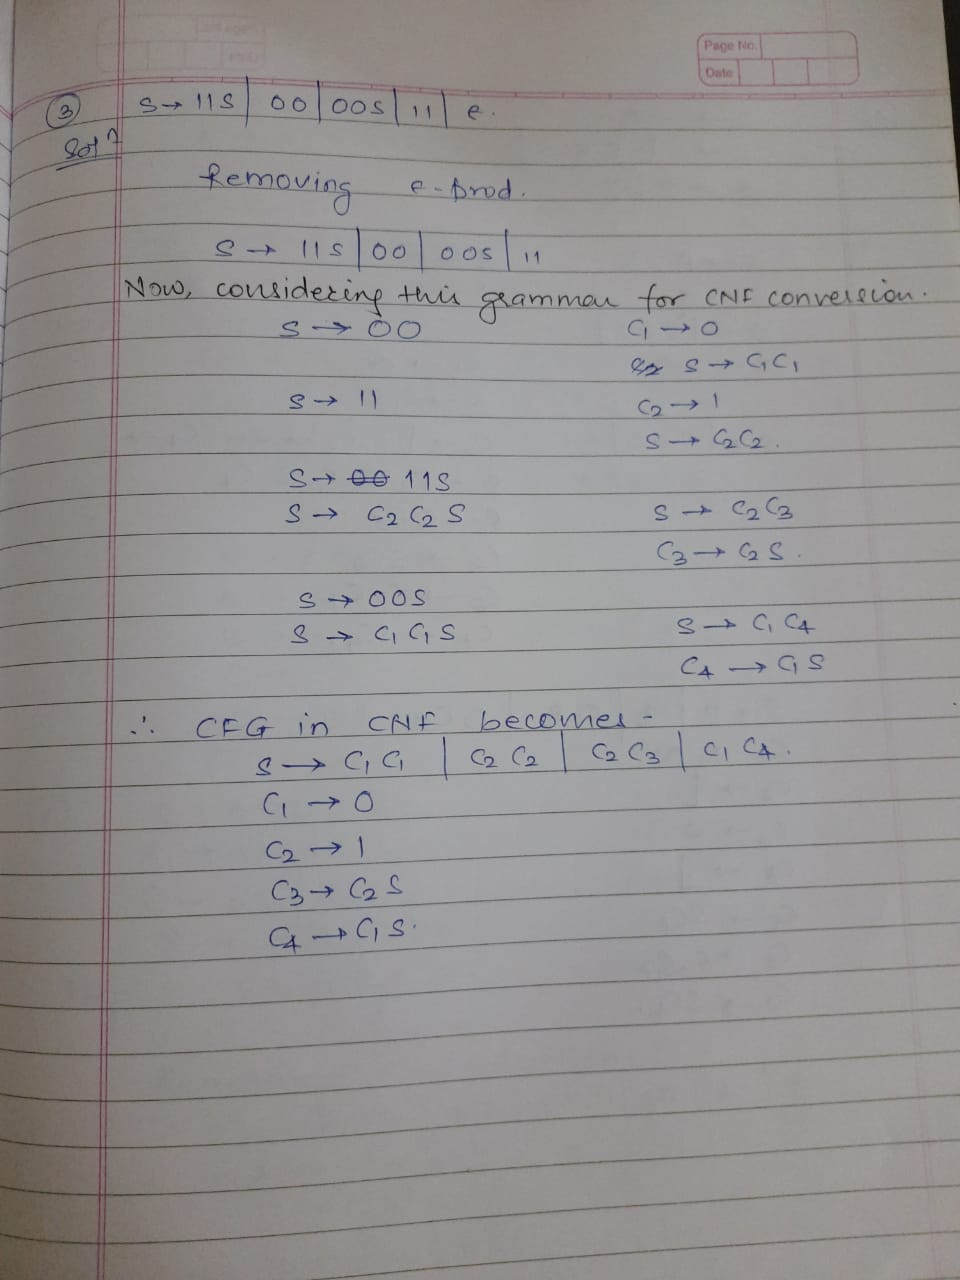 Page No.
Date
③ S → 11S | 00 | 00S | 11 | e.
Solⁿ
Removing e-prod.
S → 11S | 00 | 00S | 11
Now, considering this grammar for CNF conversion.
S → 00 C₁ → 0
S → C₁C₁
S → 11 C₂ → 1
S → C₂C₂.
S → 00 11S
S → C₂ C₂ S S → C₂C₃
C₃ → C₂ S.
S → 00S
S → C₁ C₁ S S → C₁ C₄
C₄ → C₁ S
∴ CFG in CNF becomes -
S → C₁ C₁ | C₂ C₂ | C₂ C₃ | C₁ C₄.
C₁ → 0
C₂ → 1
C₃ → C₂ S
C₄ → C₁ S.